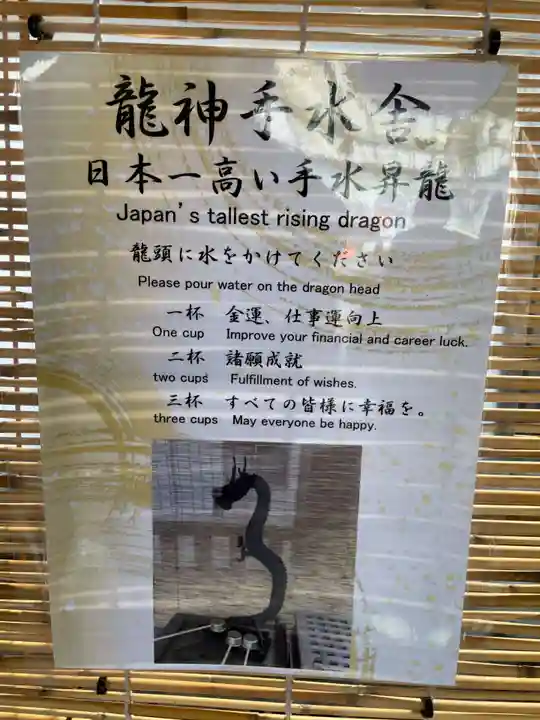 龍神手水舎
日本一高い手水昇龍
Japan's tallest rising dragon
龍頭に水をかけてください
Please pour water on the dragon head
一杯 金運、仕事運向上
One cup Improve your financial and career luck.
二杯 諸願成就
two cups Fulfillment of wishes.
三杯 すべての皆様に幸福を。
three cups May everyone be happy.